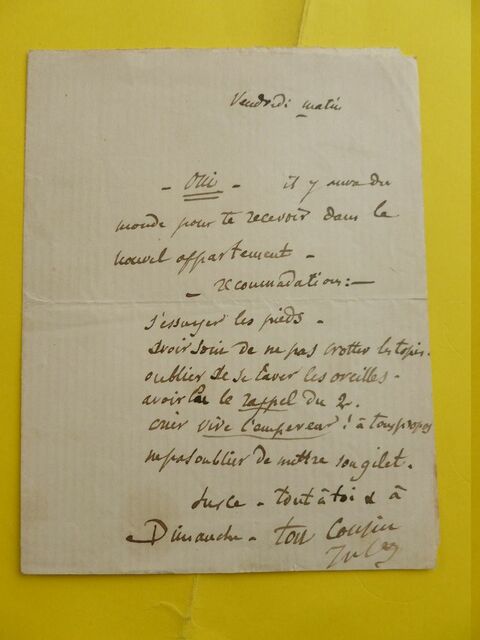 Vendredi matin
- Oui - il y aura du
monde pour te recevoir dans le
nouvel appartement -
- recommadations : -
s'essuyer les pieds -
avoir soin de ne pas crotter les tapis -
oublier de se laver les oreilles -
avoir lu le rappel du 2.
crier vive l'empereur ! à tout propos
ne pas oublier de mettre son gilet -
Sur ce - tout à toi & à
Dimanche - ton Cousin
Jules